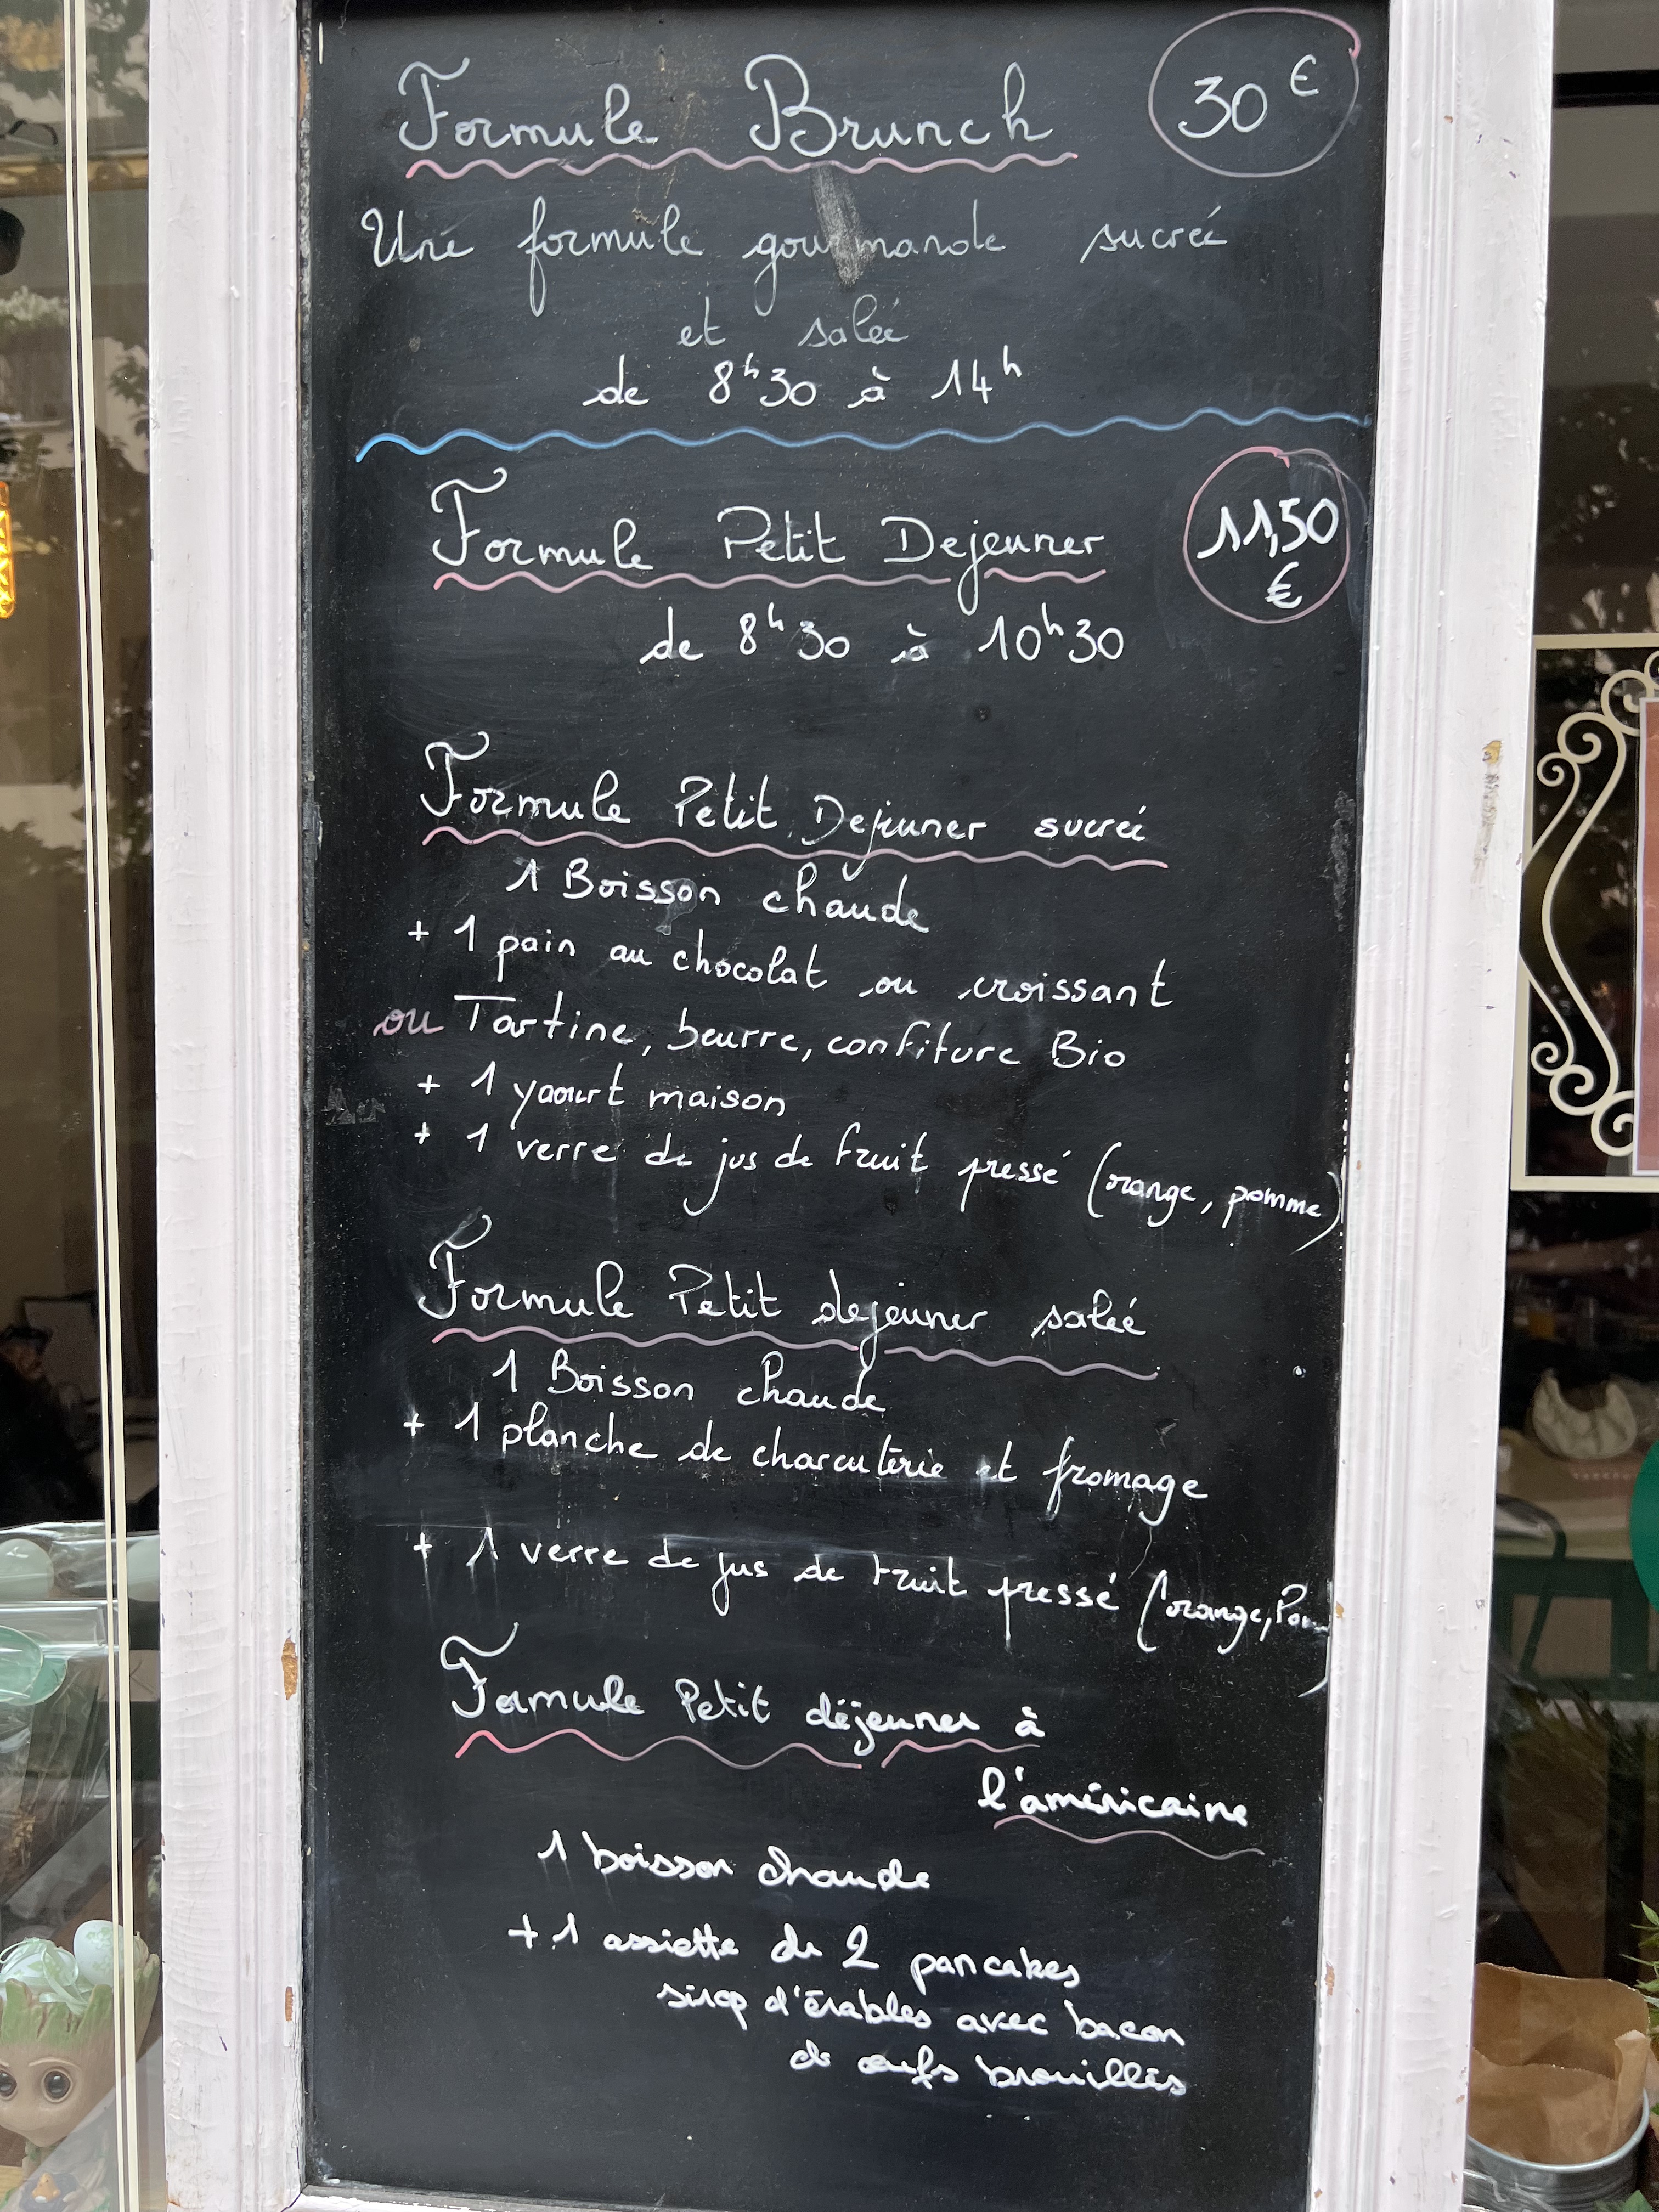 Formule Brunch 30 €
Une formule gourmande sucrée
et salée
de 8h30 à 14h
Formule Petit Dejeuner 11,50
€
de 8h30 à 10h30
Formule Petit Dejeuner sucrée
1 Boisson chaude
+ 1 pain au chocolat ou croissant
ou Tartine, beurre, confiture Bio
+ 1 yaourt maison
+ 1 verre de jus de fruit pressé (orange, pomme)
Formule Petit dejeuner salée
1 Boisson chaude
+ 1 planche de charcuterie et fromage
+ 1 verre de jus de fruit pressé (orange, Pom)
Formule Petit déjeuner à
l'américaine
1 boisson chaude
+ 1 assiette de 2 pancakes
sirop d'érables avec bacon
& œufs brouillés